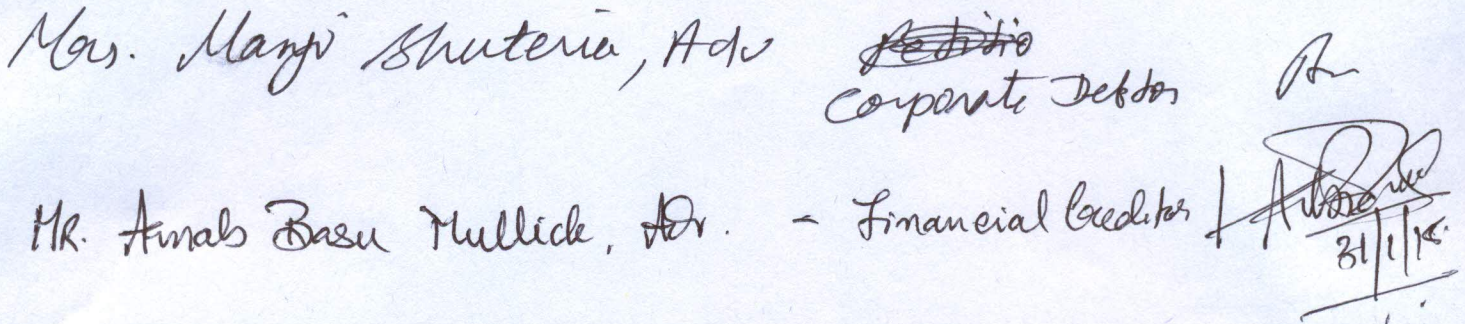 Mrs. Manju Bhuteria, Adv
Corporate Debtor
MR. Arnab Basu Mullick, Adv. - Financial Creditor
31/1/18